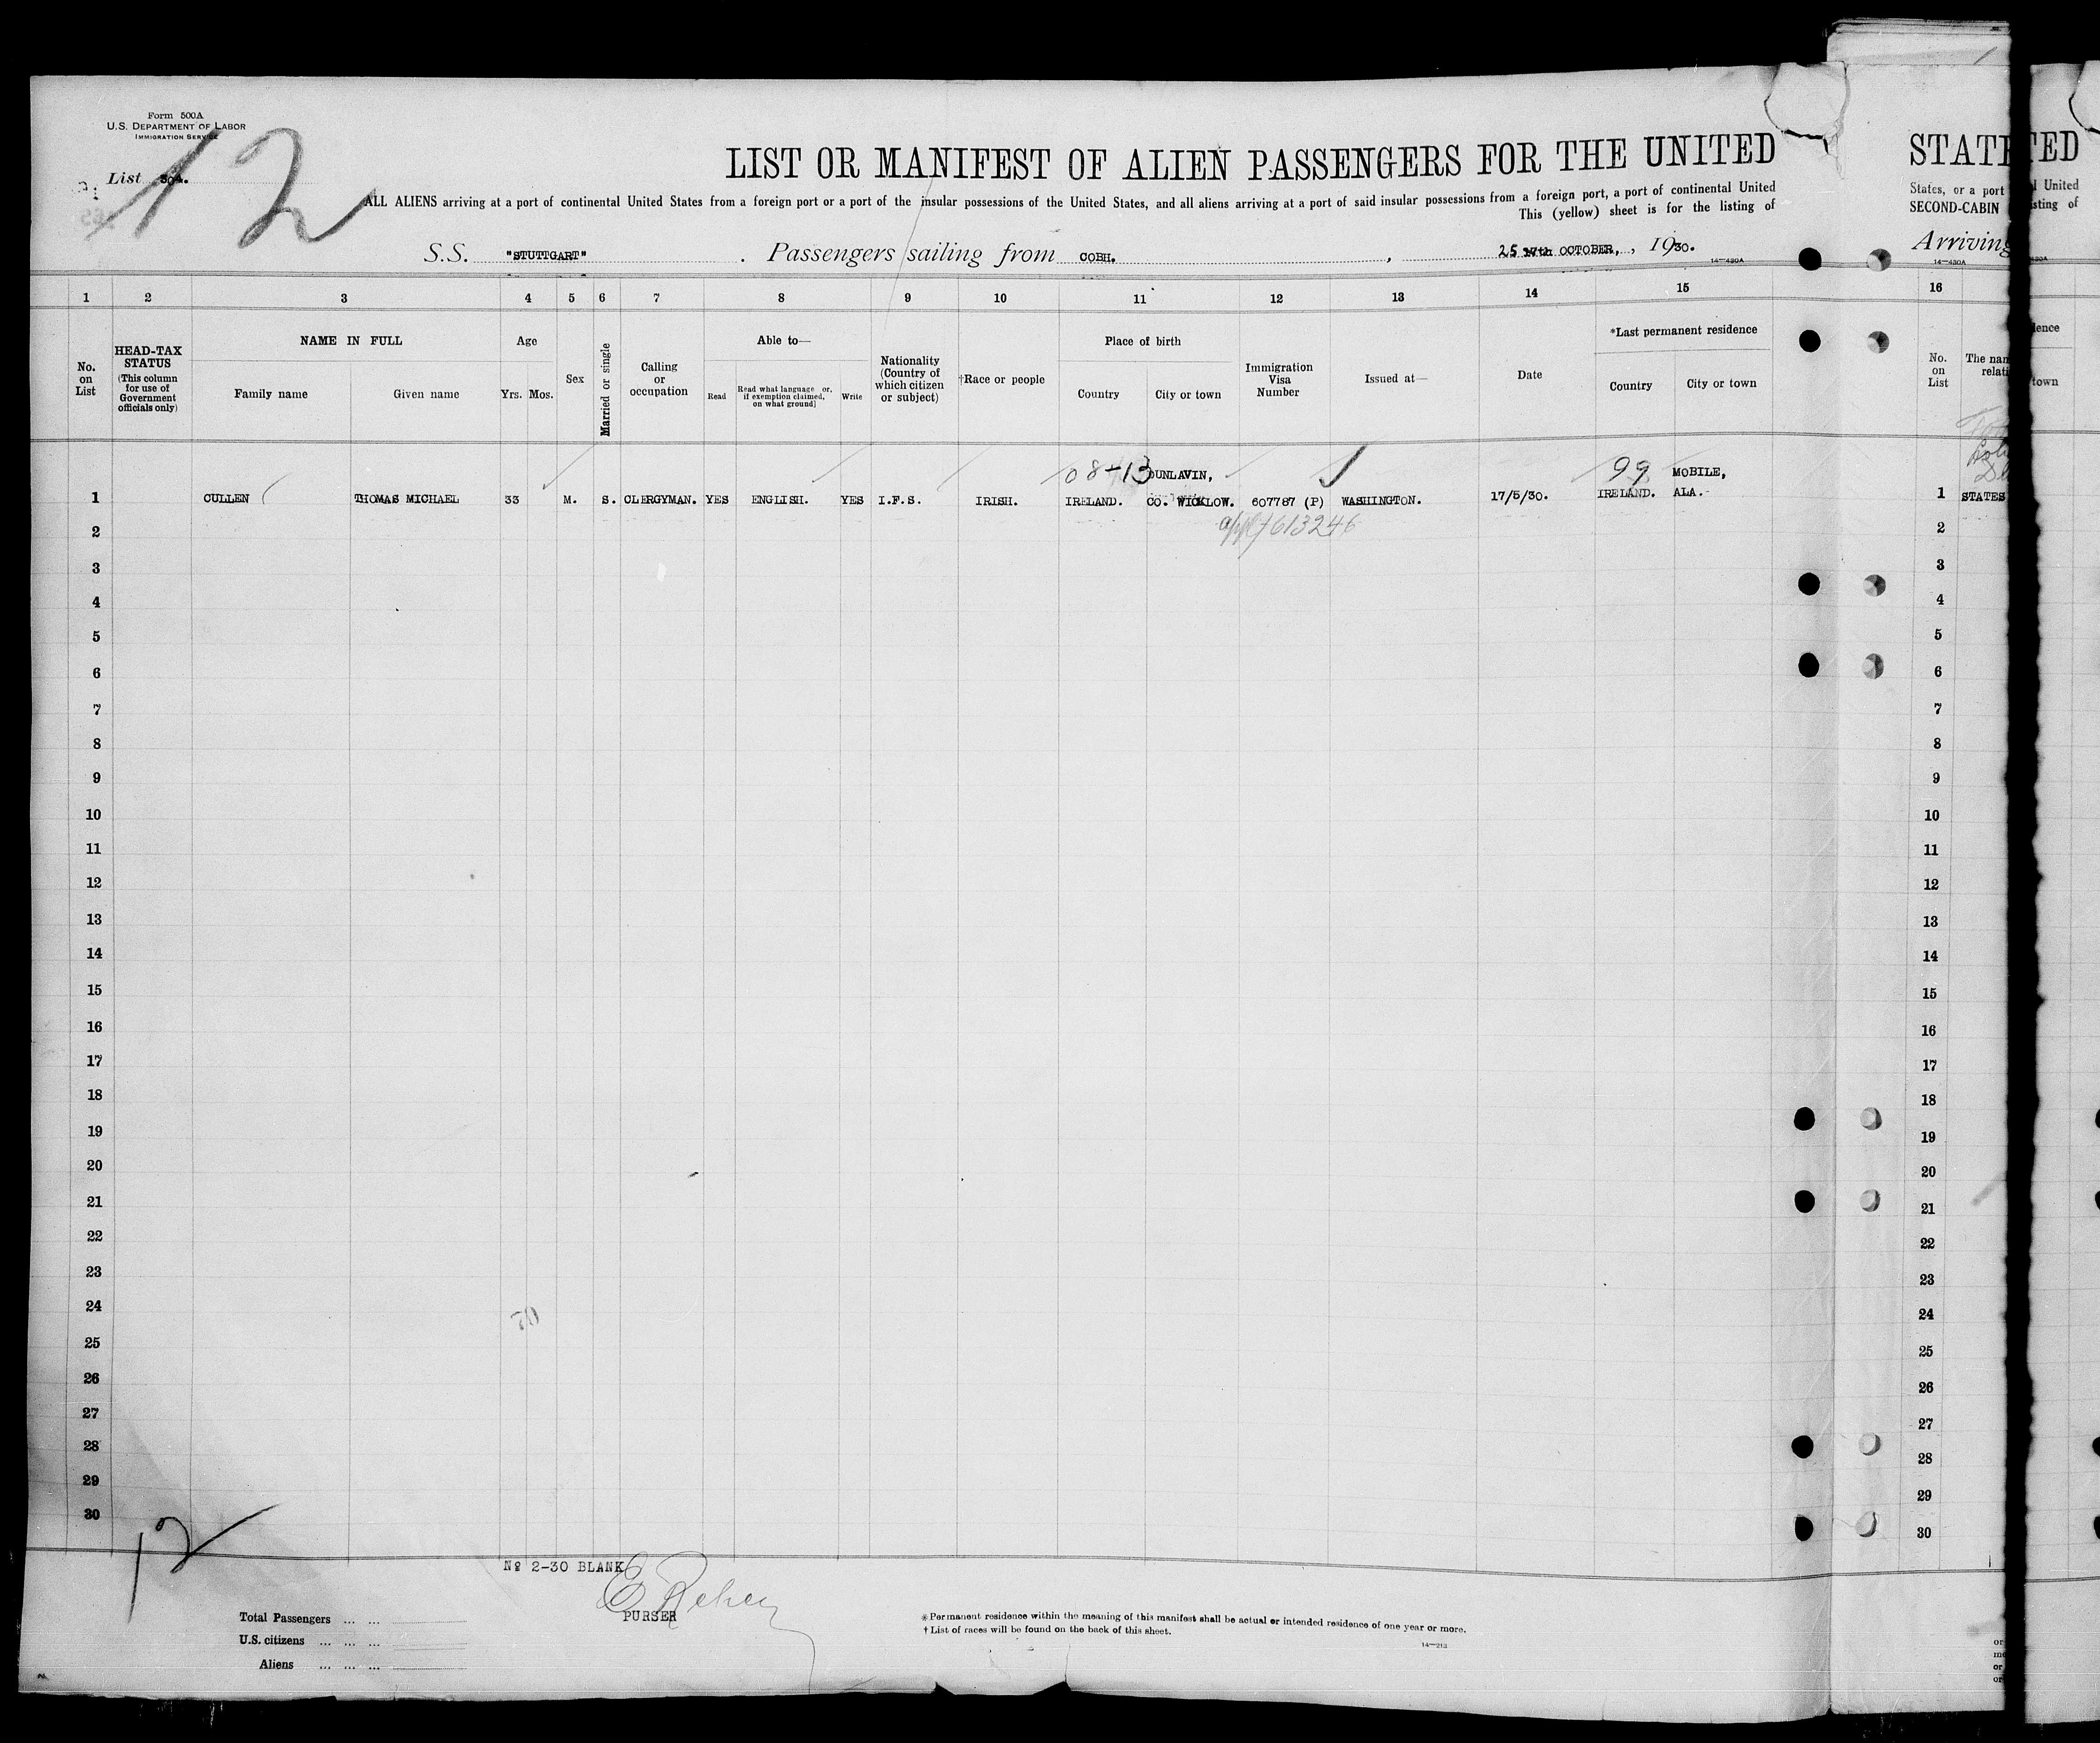 Form 500A
U.S. DEPARTMENT OF LABOR
IMMIGRATION SERVICE
List 30A.
12
LIST OR MANIFEST OF ALIEN PASSENGERS FOR THE UNITED
ALL ALIENS arriving at a port of continental United States from a foreign port or a port of the insular possessions of the United States, and all aliens arriving at a port of said insular possessions from a foreign port, a port of continental United
This (yellow) sheet is for the listing of
S.S. "STUTTGART". Passengers sailing from COBH. , 25 17th OCTOBER, , 1930.
14—430A
1 2 3 4 5 6 7 8 9 10 11 12 13 14 15
No. on List
HEAD-TAX STATUS
(This column for use of Government officials only)
NAME IN FULL
Family name
Given name
Age
Yrs. Mos.
Sex
Married or single
Calling or occupation
Able to—
Read
Read what language or, if exemption claimed, on what ground]
Write
Nationality (Country of which citizen or subject)
†Race or people
Place of birth
Country
City or town
Immigration Visa Number
Issued at—
Date
*Last permanent residence
Country
City or town
08-13 DUNLAVIN, 99 MOBILE,
1 CULLEN THOMAS MICHAEL 33 M. S. CLERGYMAN. YES ENGLISH. YES I.F.S. IRISH. IRELAND. CO. WICKLOW. 607787 (P) WASHINGTON. 17/5/30. IRELAND. ALA.
613246
2
3
4
5
6
7
8
9
10
11
12
13
14
15
16
17
18
19
20
21
22
23
24
25
26
27
28
29
30
12
Nº 2-30 BLANK
PURSER
Total Passengers ... ...
U.S. citizens ... ... ...
Aliens ... ... ...
*Permanent residence within the meaning of this manifest shall be actual or intended residence of one year or more.
†List of races will be found on the back of this sheet.
14—213
STATE
States, or a port
SECOND-CABIN
Arriving
14—430A
16
No. on List
The nam
relati
1 STATES
2
3
4
5
6
7
8
9
10
11
12
13
14
15
16
17
18
19
20
21
22
23
24
25
26
27
28
29
30
TED
United
sting of
ence
town